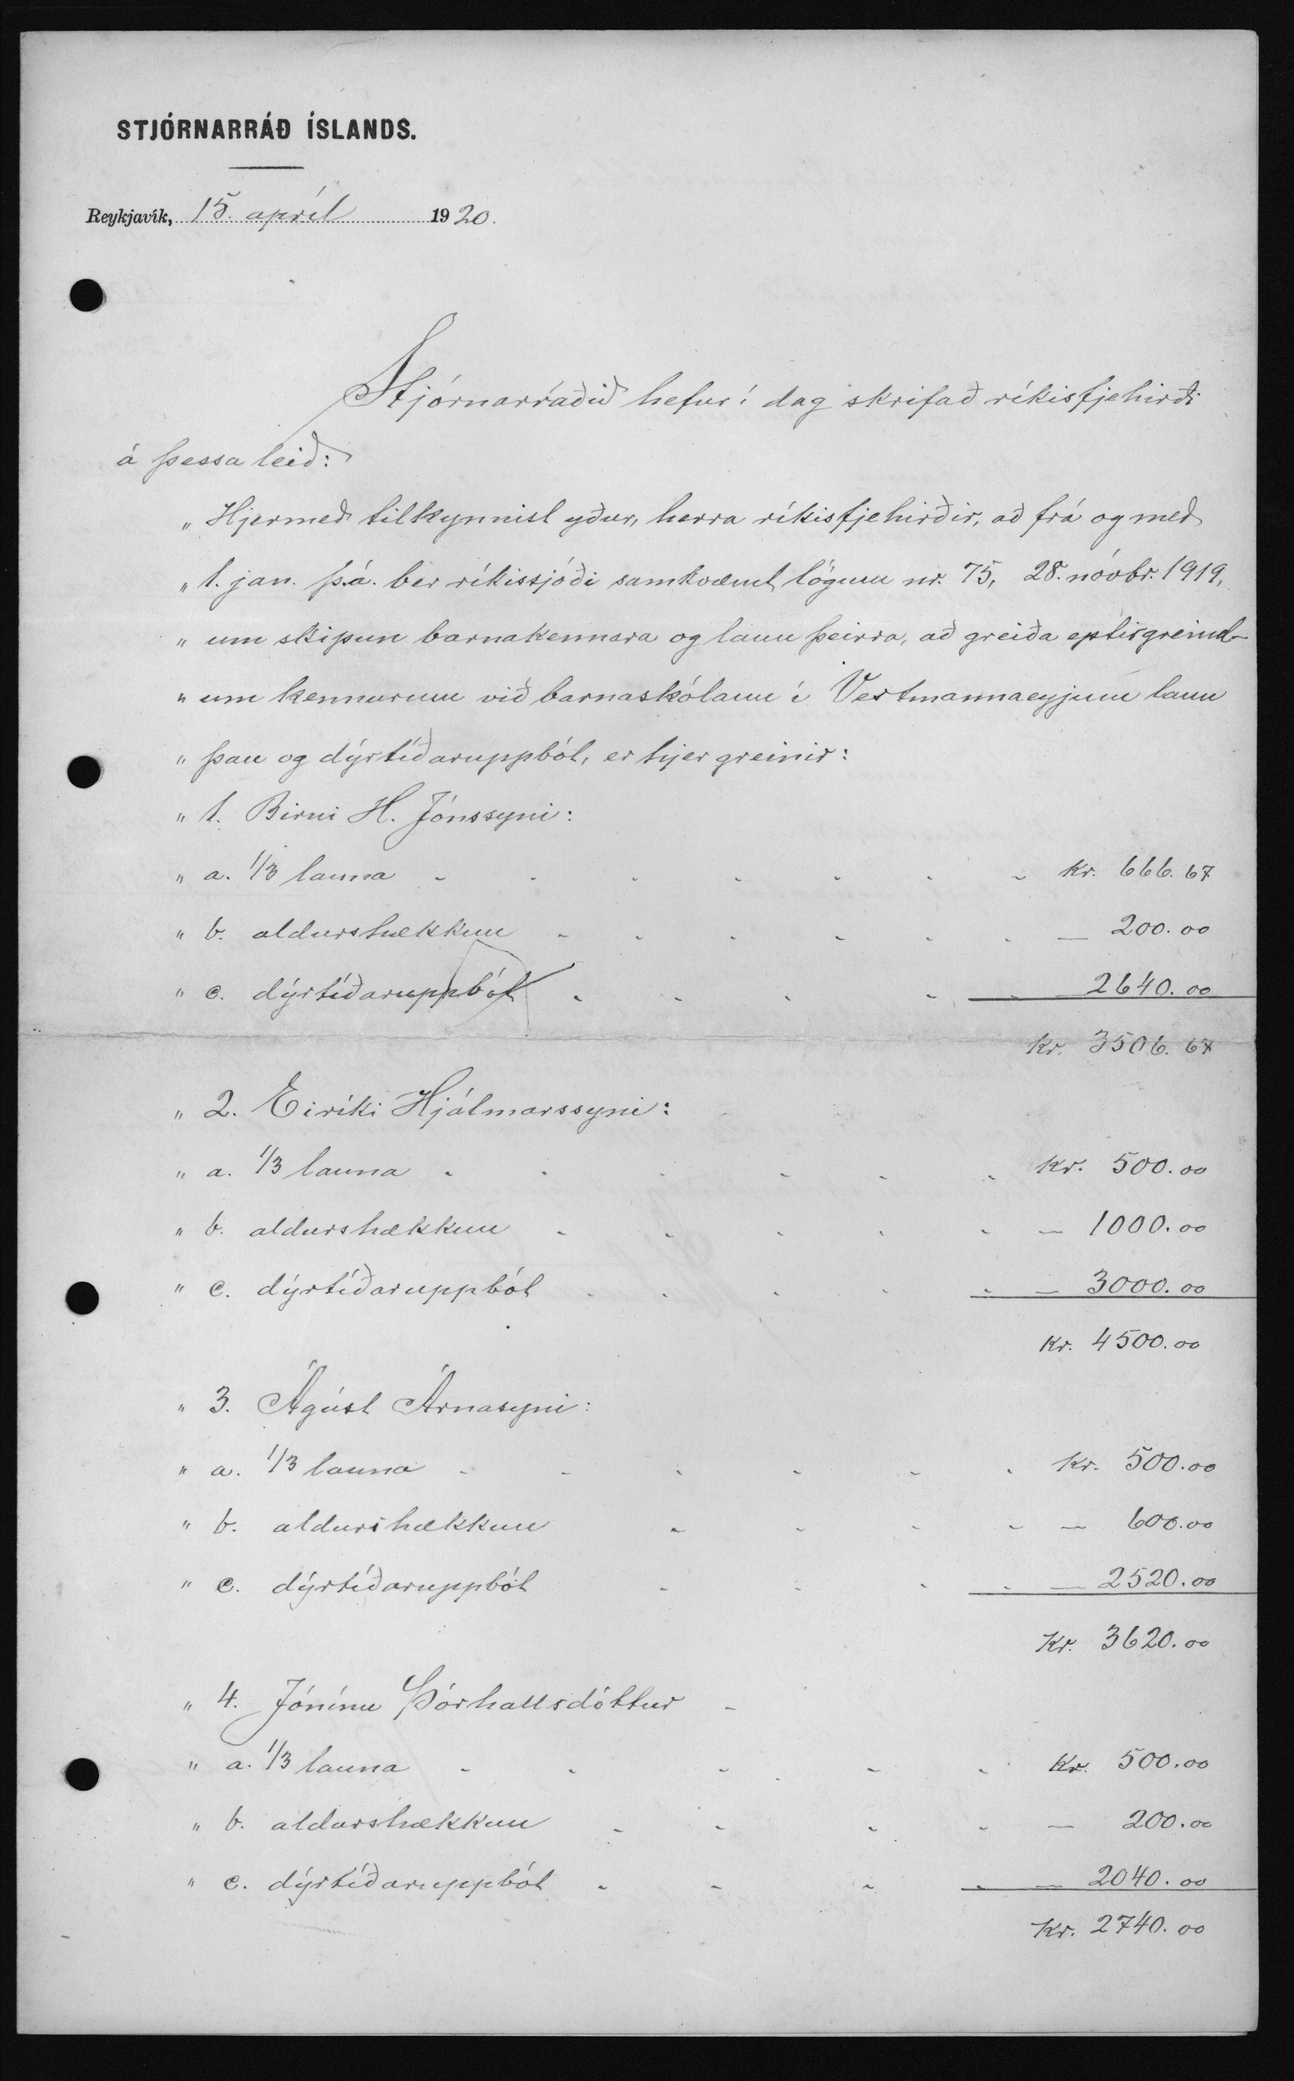 STJÓRNARRÁÐ ÍSLANDS.
Reykjavík, 15. apríl 1920.
Stjórnarráðið hefur í dag skrifað ríkisfjehirði
á þessa leið:
„Hjermeð tilkynnist yður, herra ríkisfjehirðir, að frá og með
„1. jan. þ.á. ber ríkissjóði samkvæmt lögum nr. 75, 28. nóvbr. 1919,
„um skipun barnakennara og laun þeirra, að greiða eptirgreind-
„um kennurum við barnaskólann í Vestmannaeyjum laun
„þau og dýrtíðaruppbót, er hjer greinir:
„1. Birni H. Jónssyni:
„a. 1/3 launa - - - - - - - kr. 666.67
„b. aldurshækkun - - - - - - — 200.00
„c. dýrtíðaruppbót - - - - - — 2640.00
kr. 3506.67
„2. Eiríki Hjálmarssyni:
„a. 1/3 launa - - - - - - kr. 500.00
„b. aldurshækkun - - - - - — 1000.00
„c. dýrtíðaruppbót - - - - - — 3000.00
kr. 4500.00
„3. Ágúst Árnasyni:
„a. 1/3 launa - - - - - - kr. 500.00
„b. aldurshækkun - - - - — 600.00
„c. dýrtíðaruppbót - - - - — 2520.00
kr. 3620.00
„4. Jónínu Þórhallsdóttur -
„a. 1/3 launa - - - - - - kr. 500.00
„b. aldurshækkun - - - - — 200.00
„c. dýrtíðaruppbót - - - - — 2040.00
kr. 2740.00